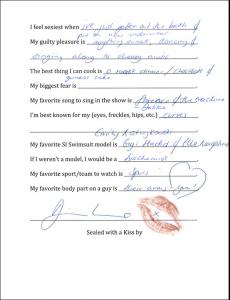 I feel sexiest when I've just gotten out the bath &
put on new underwear
My guilty pleasure is anything sweet, dancing &
singing along to cheesy music
The best thing I can cook is a roast dinner / chocolate &
guiness cake
My biggest fear is
My favorite song to sing in the show is Florence & the Machine
I'm best known for my (eyes, freckles, hips, etc.) curves
Emily Ratajkowski
My favorite SI Swimsuit model is Gigi Hadid &
If I weren't a model, I would be a
My favorite sport/team to watch is Spurs
My favorite body part on a guy is
Sealed with a Kiss by